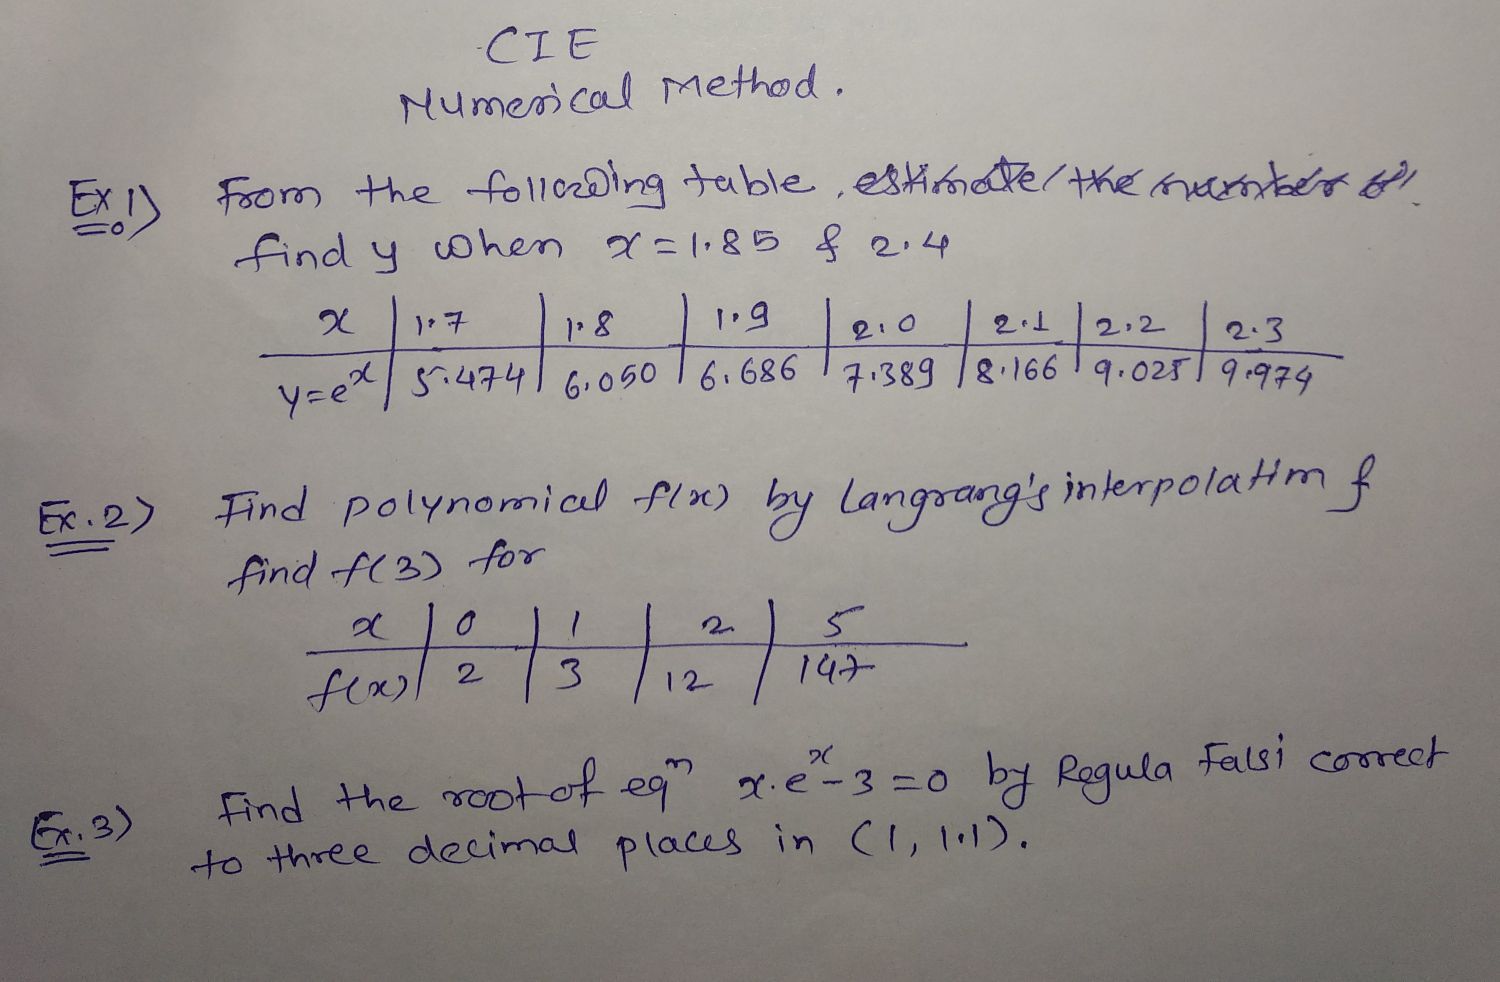 CIE
Numerical Method.
Ex.1) From the following table, estimate the number of
find y when x=1.85 & 2.4
x | 1.7 | 1.8 | 1.9 | 2.0 | 2.1 | 2.2 | 2.3
y=eˣ | 5.474 | 6.050 | 6.686 | 7.389 | 8.166 | 9.025 | 9.974
Ex.2) Find polynomial f(x) by Langrang's interpolation &
find f(3) for
x | 0 | 1 | 2 | 5
f(x) | 2 | 3 | 12 | 147
Ex.3) Find the root of eqⁿ x.eˣ-3=0 by Regula Falsi correct
to three decimal places in (1, 1.1).